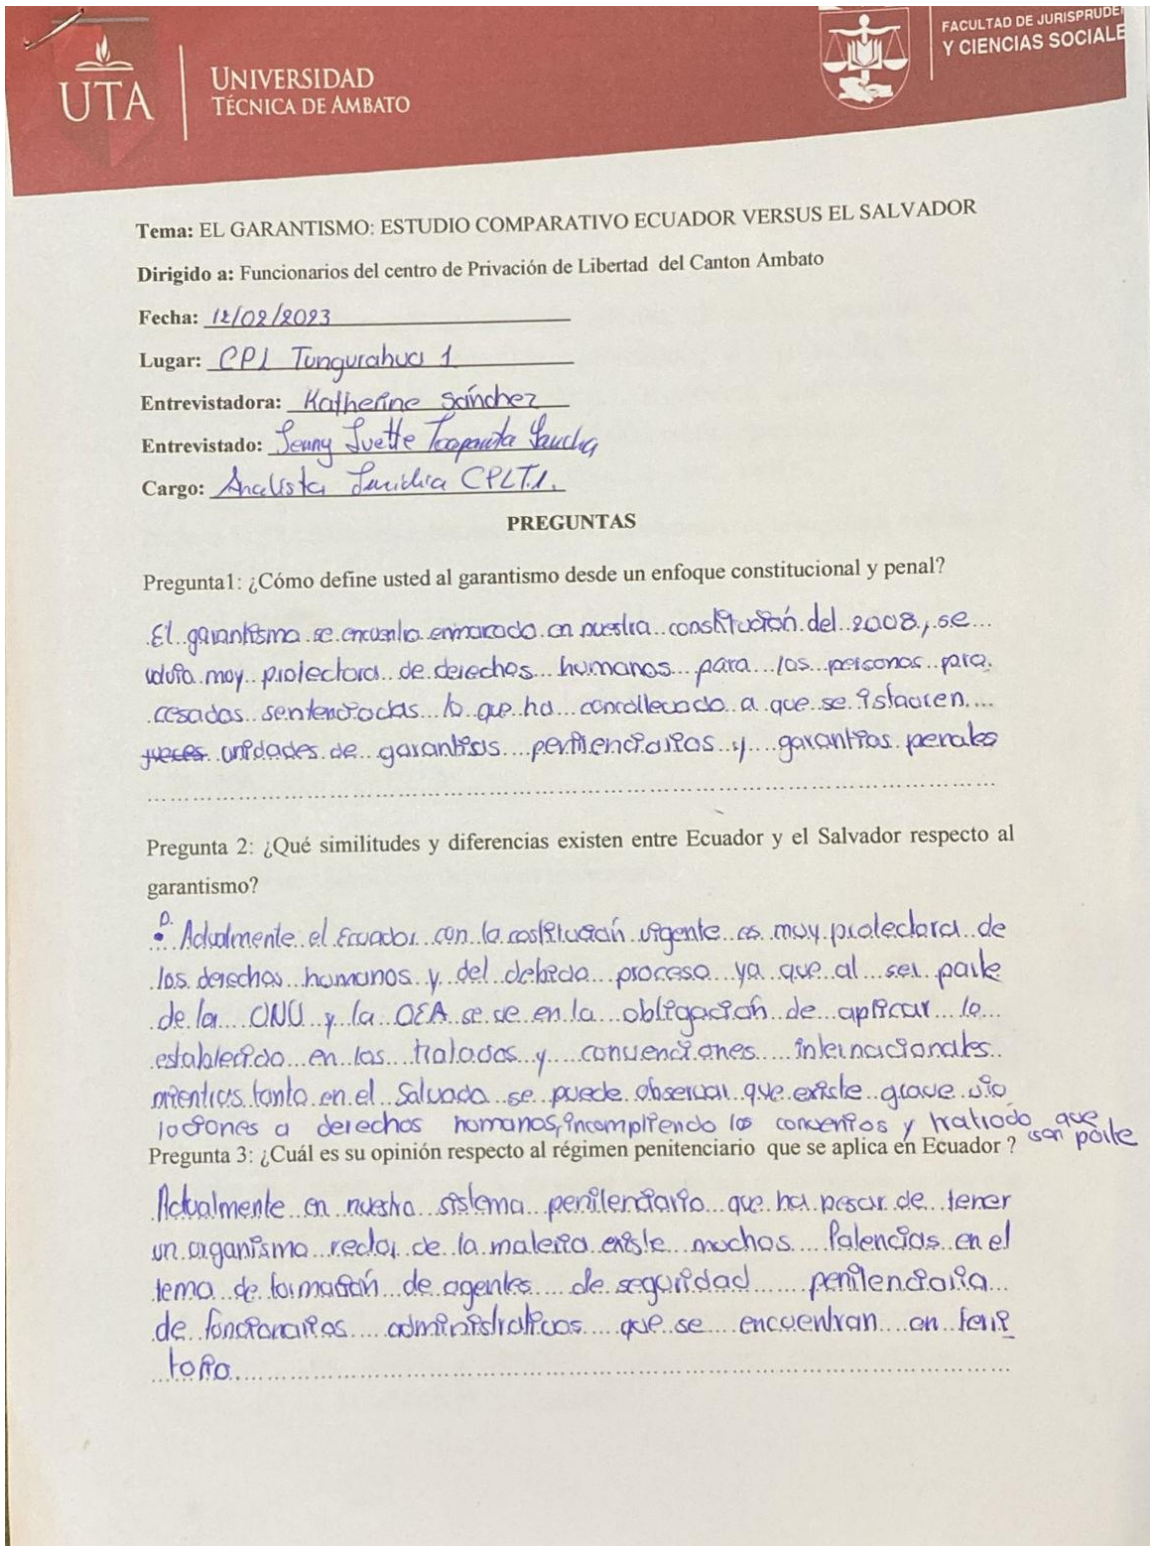 UTA
UNIVERSIDAD
TÉCNICA DE AMBATO
FACULTAD DE JURISPRUDE
Y CIENCIAS SOCIALE
Tema: EL GARANTISMO: ESTUDIO COMPARATIVO ECUADOR VERSUS EL SALVADOR
Dirigido a: Funcionarios del centro de Privación de Libertad del Canton Ambato
Fecha: 12/02/2023
Lugar: CPL Tungurahua 1
Entrevistadora: Katherine Sánchez
Entrevistado: Jenny Ivette
Cargo: Analista Juridica CPLT.1.
PREGUNTAS
Pregunta1: ¿Cómo define usted al garantismo desde un enfoque constitucional y penal?
El garantismo se encuentra enmarcado en nuestra constitución del 2008, se
moy protectora de derechos humanos para las personas pro
cesadas sentenciadas lo que ha conrollecado a que se istauren
jueces unidades de garantias penitenciarias y garantias penales
Pregunta 2: ¿Qué similitudes y diferencias existen entre Ecuador y el Salvador respecto al
garantismo?
Actualmente el Ecuador con la costitución vigente es muy protectora de
los derechos humanos y del debido proceso ya que al ser parte
de la ONU y la OEA se ve en la obligación de aplicar lo
establecido en los tratados y convenciones internacionales
mientras tanto en el Salvado se puede observar que existe grave vio
laciones a derechos humanos, incompliendo los convenios y tratado que
son parte
Pregunta 3: ¿Cuál es su opinión respecto al régimen penitenciario que se aplica en Ecuador ?
Actualmente en nuestro sistema penitenciario que ha pesar de tener
un organismo rector de la materia existe muchos falencias en el
tema de formación de agentes de seguridad penitenciaria
de funcionarios administrativos que se encuentran en terri
torio